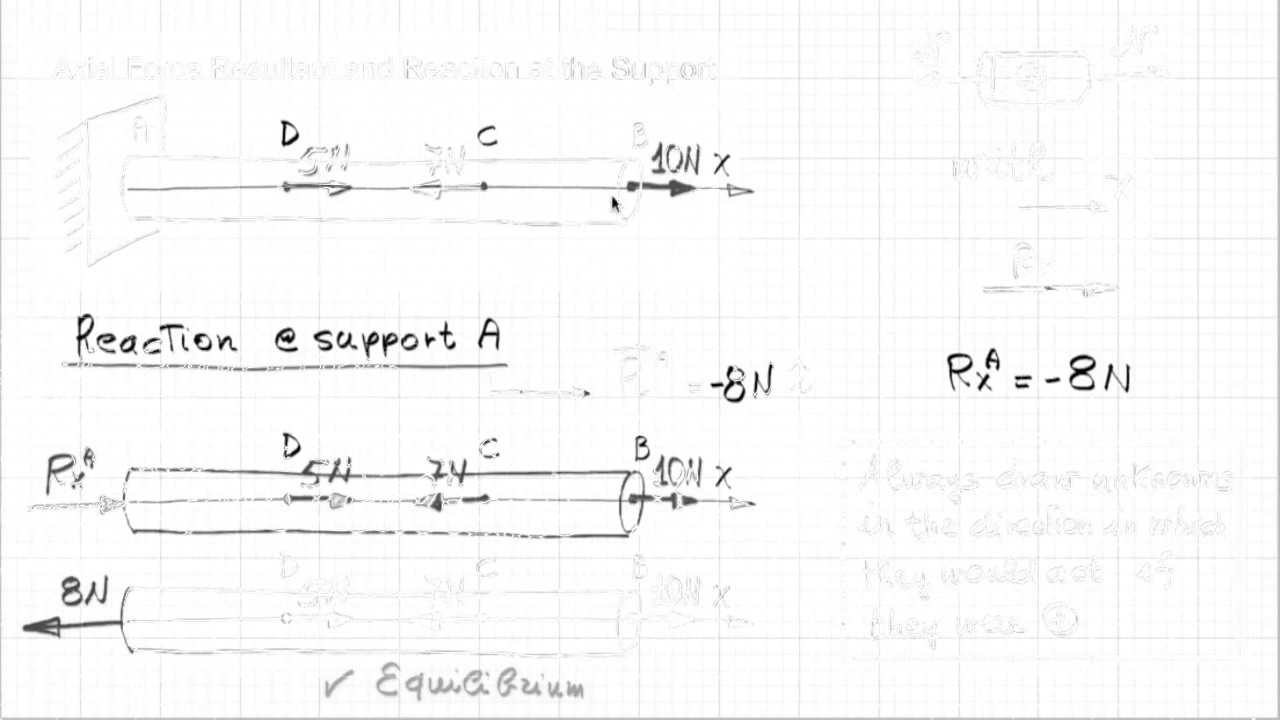 Axial Force Resultant and Reaction at the Support
N N
A D 5N 7N C B 10N x
write
x
Rx
Reaction @ support A
= -8N
RxA = -8N
RxA D 5N 7N C B 10N x
Always draw unknowns
in the direction in which
they would act if
they were +
8N D 5N 7N C B 10N x
✓ Equilibrium